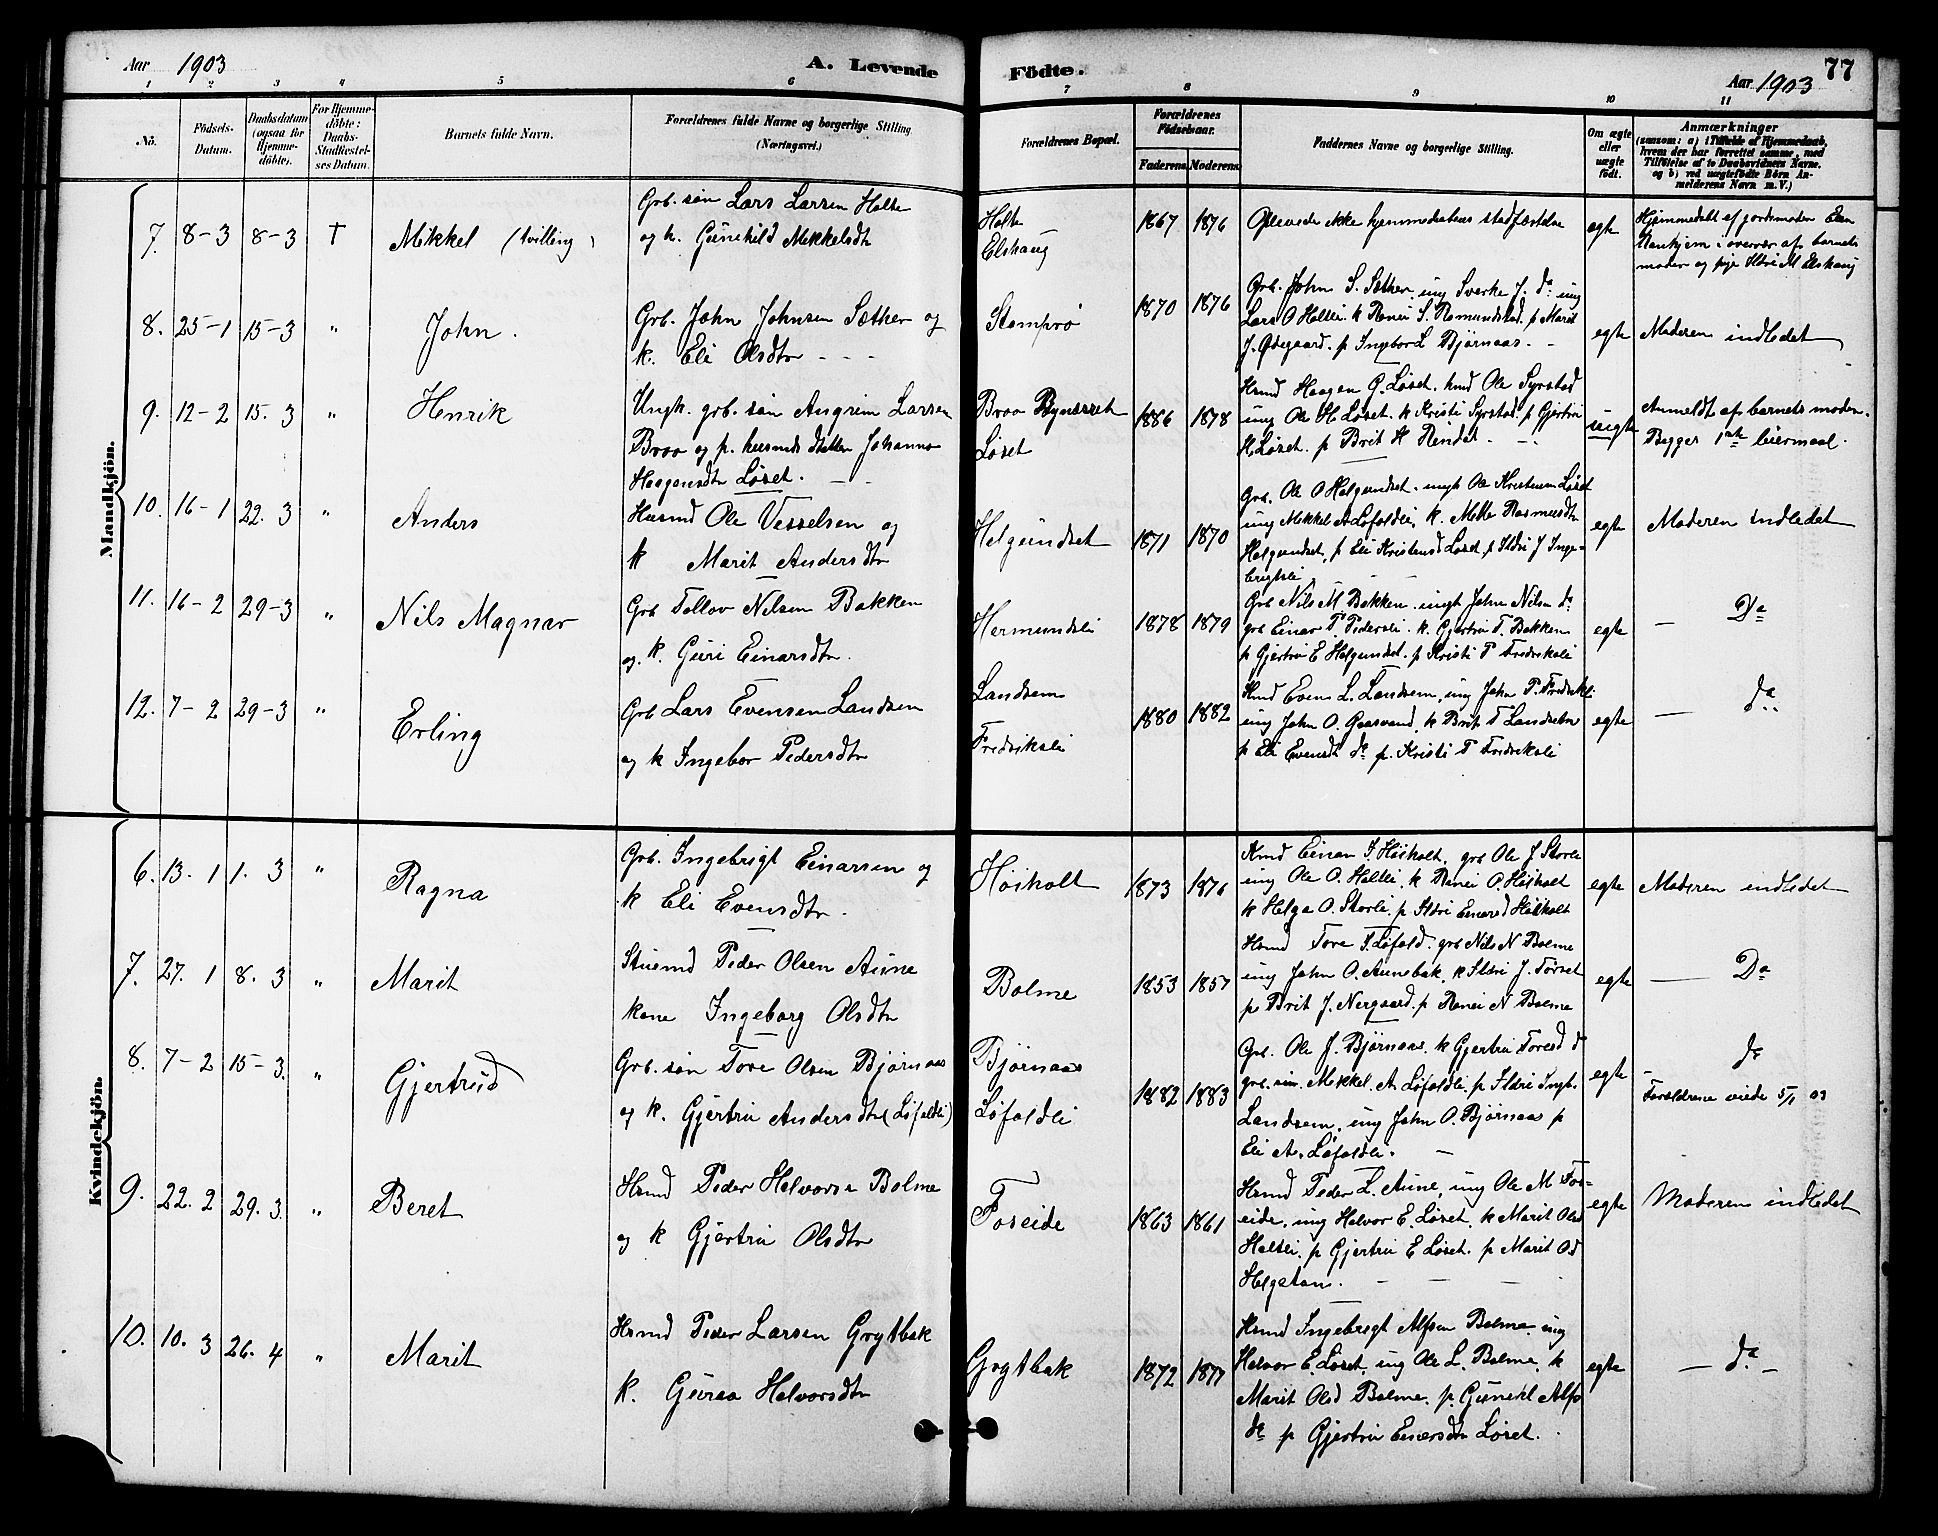 Aar 1903
A. Levende Födte.
Aar 1903
77
1 2 3 4 5 6 7 8 9 10 11
No.
Födsels-Datum.
Daabsdatum (ogsaa for Hjemme-döbte).
For Hjemme-döbte: Daabs-Stadfæstel-ses Datum.
Barnets fulde Navn.
Forældrenes fulde Navne og borgerlige Stilling (Næringsvei.)
Forældrenes Bopæl.
Forældrenes Födselsaar.
Faderens. Moderens.
Faddernes Navne og borgerlige Stilling.
Om ægte eller uægte födt.
Anmærkninger
(saasom: a) i Tilfælde af Hjemmedaab, hvem der har forrettet samme, med Tilföielse af to Daabsvidners Navne. og b) ved uægtefödte Börn An-melderens Navn m. V.)
Mandkjön.
7. 8-3 8-3 † Mikkel (tvilling)
Grb. søn Lars Larsen Holte
og k. Gunhild Mikkelsdtr
Holte
Elshaug
1867 1876
Oplevede ikke hjemmedaabens stadfæstelse
egte
Hjemmedøbt af jordemoder
i overvær af barnets
moder og pige Ildri M Elshaug
8. 25-1 15-3 " John.
Grb. John Johnsen Sæther og
k. Eli Olsdtr
Stomprø
1870 1876
Grb. John S. Sæther, ung Sverke J. do ung
Lars O Holtli. k Ranei S. Romundstad. p Marit
J. Ødegaard. p Ingebor L Bjørnaas.
egte
Moderen indledet
9. 12-2 15. 3 " Henrik
Ungk. grb. søn Angrim Larsen
Broo og p. husmds datter Johanna
Haagensdtr Løset.
Broo Bynesset
Løset
1886 1878
Hsmd Haagen G. Løset. hmd Ole Syrstad
ung Ole H. Løset. k Kristi Syrstad. p Gjertru
H. Løset. p Brit H Rindal
uegte
Anmeldt af barnets moder.
Begges 1ste leiermaal.
10. 16-1 22. 3 " Anders
Husmd Ole Vesselsen og
k Marit Andersdtr
Helgundset
1871 1870
Grb. Ole O Helgundset. ungk Ole Kristensen Løset
ung Mikkel A Løfoldli, k. Mette Rasmusdtr
Helgundset, p Eli Kristensd Løset, p Ildri J Inge-
brigtsli
egte
Moderen indledet
11. 16-2 29-3 " Nils Magnar
Grb Tollov Nilsen Bakken
og k. Guri Einarsdtr.
Hermundsli
1878 1879
Grb Nils M. Bakken. ungk John Nilsen do
grb Einar P. Pedersli. k. Gjertru T. Bakken
p Gjertru E Helgundset. p Kristi P Fredriksli
egte
— Do
12. 7-2 29-3 " Erling
Grb Lars Evensen Landsem
og k Ingebor Pedersdtr
Landsem
Fredriksli
1880 1882
Hmd Even L. Landsem, ung John P. Fredrikli
ung John O. Gaasvand, k Brit T Landsem
p Eli Evensdt do p. Kristi P Fredriksli
egte
— do
Kvindekjön.
6. 13. 1 1. 3 " Ragna
Grb. Ingebrigt Einarsen og
k Eli Evensdtr.
Høiholt
1873 1876
Kmd Einar I. Høiholt. grb Ole J Storli
ung Ole O. Holtli. k Ranei O. Høiholt
k Helga O. Storli. p Ildri Einarsd Høiholt
egte
Moderen indledet
7. 27. 1 8. 3 " Marit
Stuemd Peder Olsen Aune
kone Ingeborg Olsdtr
Bolme
1853 1857
Hsmd Tore I. Løfald. grb Nils N Bolme
ung John O. Aunebak, k Ildri J. Tørset
p Brit J. Nergaard. p Ranei N Bolme
egte
— Do
8. 7-2 15-3. " Gjertrud
Grb. søn Tore Olsen Bjørnaas
og k. Gjertru Andersdtr (Løfaldli)
Bjørnaas
Løfaldli
1882 1883
Grb. Ole J. Bjørnaas. k Gjertru Toresd do
grb. søn. Mikkel A Løfaldli. p Ildri Ingb.
Landsem, ung John O. Bjørnaas p
Eli A. Løfaldli.
egte
do
Forældrene viede 5/1 03
9. 22. 2 29. 3. " Beret
Hsmd Peder Halvorse Bolme
og k Gjertru Olsdtr
Foseide
1863 1861
Hsmd Peder L. Aune, ung Ole M Fos-
eide, ung Halvor E. Løset. k Marit Olsd
Holtli. p Gjertru E Løset. p Marit Od
Helgetun.
egte
Moderen indledet
10. 10. 3 26. 4 " Marit
Hsmd Peder Larsen Grytbak
k. Guraa Halvorsdtr
Grytbak
1872 1877
Hsmd Ingebrigt Alfsen Bolme. ung
Halvor E. Løset. ung Ole L. Bolme. k
Marit Olsd Bolme. p. Gunhil Alfs
do p Gjertru Einarsdtr Løset.
egte
— do —